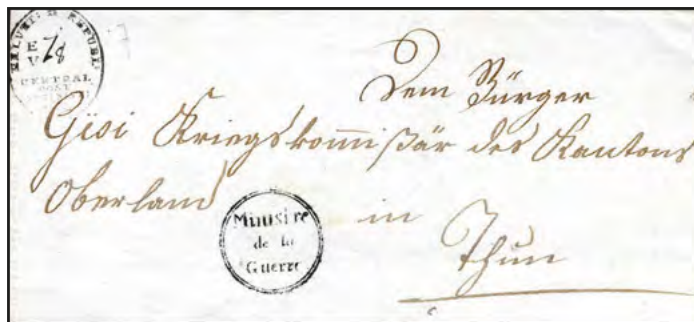 HELVETI: REPUBL:
E
V 78
CENTRAL
POST
Dem Bürger
Gisi Kriegskommißär des Kantons
Oberland
in
Thun
Ministre
de la
Guerre